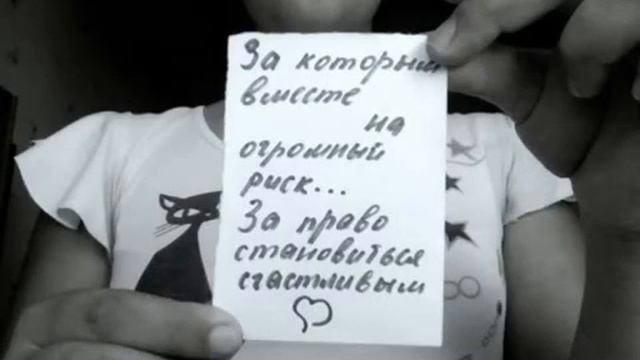 За которым
вместе
на
огромный
риск...
За право
становиться
счастливым